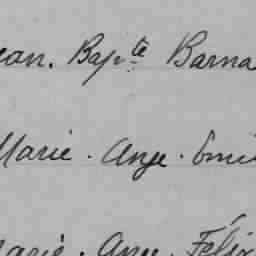 ean. Bapte Barna
Marie. Ange. Emi
Marie. Ange. Félix